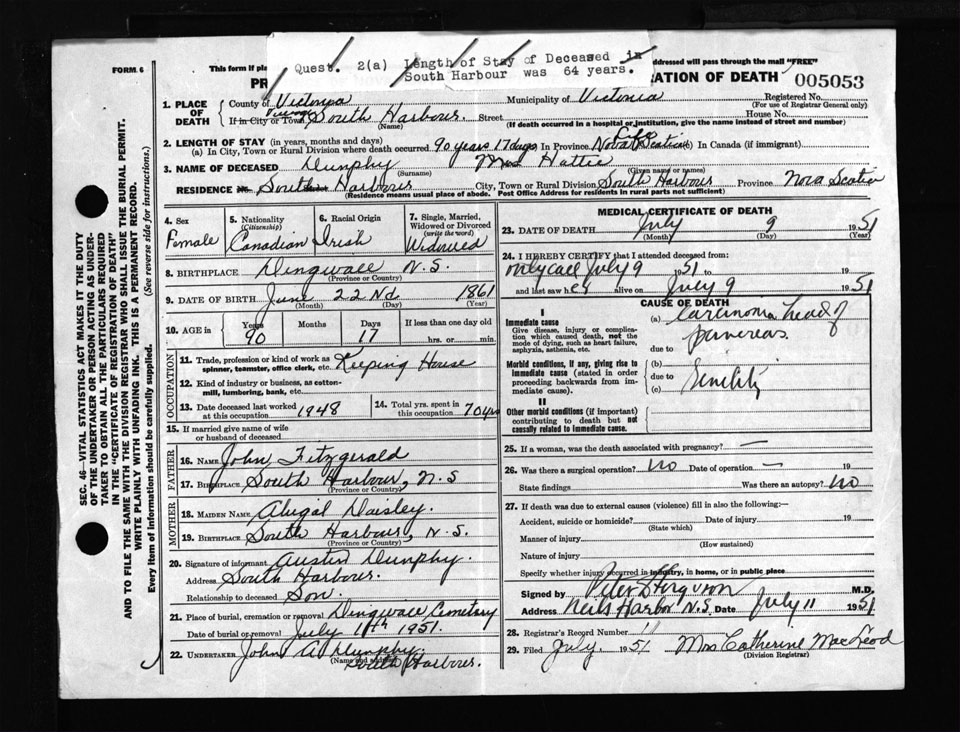 FORM 6
This form if pla
ddressed will pass through the mail "FREE"
Quest. 2(a) Length of Stay of Deceased in
South Harbour was 64 years.
PR
RATION OF DEATH
005053
1. PLACE OF DEATH
County of Victoria Municipality of Victoria Registered No.
(For use of Registrar General only)
Village
If in City or Town South Harbour Street House No.
(Name) (If death occurred in a hospital or institution, give the name instead of street and number)
2. LENGTH OF STAY (in years, months and days)
(a) In City, Town or Rural Division where death occurred 90 years 17 days In Province Nova Scotia Life In Canada (if immigrant)
3. NAME OF DECEASED Dunphy Mrs Hattie
(Surname) (Given name or names)
RESIDENCE No. South Harbour City, Town or Rural Division South Harbour Province Nova Scotia
(Residence means usual place of abode. Post Office Address for residents in rural parts not sufficient)
4. Sex
Female
5. Nationality
(Citizenship)
Canadian
6. Racial Origin
Irish
7. Single, Married, Widowed or Divorced
(write the word)
Widowed
8. BIRTHPLACE Dingwall N.S.
(Province or Country)
9. DATE OF BIRTH June 22nd 1861
(Month) (Year)
10. AGE in Years Months Days If less than one day old
90 17 hrs. or min.
OCCUPATION
11. Trade, profession or kind of work as
spinner, teamster, office clerk, etc. Keeping House
12. Kind of industry or business, as cotton-
mill, lumbering, bank, etc.
13. Date deceased last worked
at this occupation 1948
14. Total yrs. spent in
this occupation 70 yrs
15. If married give name of wife
or husband of deceased
FATHER
16. NAME John Fitzgerald
17. BIRTHPLACE South Harbour, N.S
(Province or Country)
MOTHER
18. MAIDEN NAME Abigal Daisley.
19. BIRTHPLACE South Harbour, N.S.
(Province or Country)
20. Signature of informant Austin Dunphy.
Address South Harbour.
Relationship to deceased Son.
21. Place of burial, cremation or removal Dingwall Cemetary
Date of burial or removal July 11th 1951.
22. UNDERTAKER John A. Dunphy
(Name and address)
South Harbour.
MEDICAL CERTIFICATE OF DEATH
23. DATE OF DEATH July 9 1951
(Month) (Day) (Year)
24. I HEREBY CERTIFY that I attended deceased from:
only call July 9 1951 to 19
and last saw her alive on July 9 1951
CAUSE OF DEATH
I
Immediate cause
Give disease, injury or complica-
tion which caused death, not the
mode of dying, such as heart failure,
asphyxia, asthenia, etc.
(a) Carcinoma head of
pancreas.
due to
Morbid conditions, if any, giving rise to
immediate cause (stated in order
proceeding backwards from im-
mediate cause).
(b)
due to Senility
(c)
II
Other morbid conditions (if important)
contributing to death but not
causally related to immediate cause.
25. If a woman, was the death associated with pregnancy? —
26. Was there a surgical operation? no Date of operation — 19
State findings Was there an autopsy? no
27. If death was due to external causes (violence) fill in also the following:—
Accident, suicide or homicide? Date of injury 19
(State which)
Manner of injury
(How sustained)
Nature of injury
Specify whether injury occurred in industry, in home, or in public place
Signed by Peter Ferguson M.D.
Address Neils Harbor N.S. Date July 11 1951
28. Registrar's Record Number 11
29. Filed July, 1951 Mrs Catherine MacLeod
(Division Registrar)
SEC. 46—VITAL STATISTICS ACT MAKES IT THE DUTY
OF THE UNDERTAKER OR PERSON ACTING AS UNDER-
TAKER TO OBTAIN ALL THE PARTICULARS REQUIRED
IN THE "CERTIFICATE OF REGISTRATION OF DEATH"
AND TO FILE THE SAME WITH THE DIVISION REGISTRAR WHO SHALL ISSUE THE BURIAL PERMIT.
WRITE PLAINLY WITH UNFADING INK. THIS IS A PERMANENT RECORD.
Every item of information should be carefully supplied. (See reverse side for instructions.)